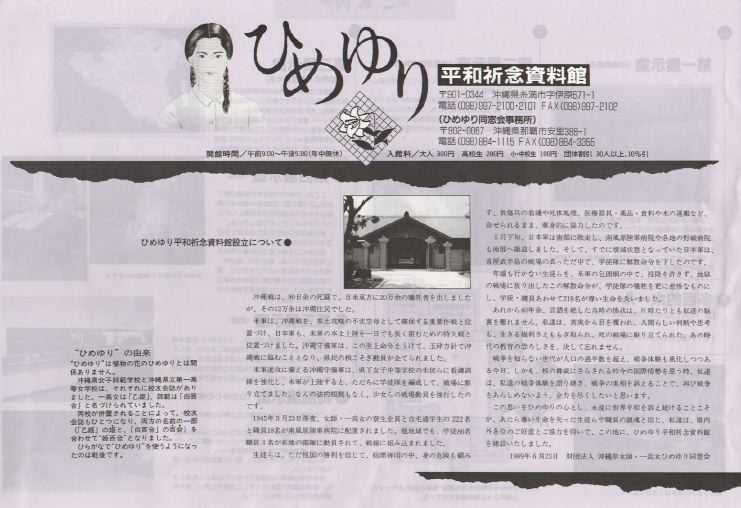 ひめゆり
平和祈念資料館
〒901-0344 沖縄県糸満市字伊原671-1
電話(098)997-2100・2101 FAX(098)997-2102
(ひめゆり同窓会事務所)
〒902-0067 沖縄県那覇市安里388-1
電話(098)884-1115 FAX(098)884-3355
開館時間/午前9:00〜午後5:00(年中無休) 入館料/大人 300円 高校生 200円 小・中校生 100円 団体割引 30人以上、10%引
ひめゆり平和祈念資料館設立について●
沖縄戦は、90日余の死闘で、日米双方に20万余の犠牲者を出しました
が、その12万余は沖縄住民でした。
米軍は、沖縄戦を、本土攻略の不沈空母として確保する重要作戦と位
置づけ、日本軍も、米軍の本土上陸を一日でも長く阻むための持久戦と
位置づけました。沖縄守備軍は、この至上命令をうけて、玉砕方針で沖
縄戦に臨むこととなり、県民の根こそぎ動員が企てられました。
米軍進攻に備える沖縄守備軍は、県下女子中等学校の生徒らに看護訓
練を強化し、米軍が上陸すると、ただちに学徒隊を編成して、戦場に駆
り立てました。なんの法的根拠もなく、少女らの戦場動員を強行したの
です。
1945年3月23日深夜、女師・一高女の寮生全員と自宅通学生の222名
と職員18名が南風原陸軍病院に配置されました。他地域でも、学徒80名
職員3名が在地の部隊に動員されて、戦線に組み込まれました。
生徒らは、ただ祖国の勝利を信じて、砲煙弾雨の中、身の危険も顧み
ず、負傷兵の看護や死体処理、医療器具・薬品・食料や水の運搬など、
命ぜられるまま、献身的に協力したのです。
5月下旬、日本軍は南部に敗走し、南風原陸軍病院や各地の野戦病院
も南部へ撤退しました。そして、すでに壊滅状態となっていた日本軍は
喜屋武半島の戦場の真っただ中で、学徒隊に解散命令を下したのです。
年端も行かない生徒らを、米軍の包囲網の中で、投降を許さず、地獄
の戦場に放り出したこの解散命令が、学徒隊の犠牲を更に悲惨なものに
し、学徒・職員あわせて219名が尊い生命を失いました。
あれから40年余、言語を絶した当時の惨状は、片時たりとも私達の脳
裏を離れません。私達は、真実から目を覆われ、人間らしい判断や思考
も、生きる権利さえももぎ取られ、死の戦場に駆り立てられた、あの時
代の教育の恐ろしさを、決して忘れません。
戦争を知らない世代が人口の過半数を超え、戦争体験も風化しつつあ
る今日、しかも、核の脅威にさらされる昨今の国際情勢を思う時、私達
は、私達の戦争体験を語り継ぎ、戦争の実相を訴えることで、再び戦争
をあらしめないよう、全力を尽くしたいと思います。
この思いをひめゆりの心とし、永遠に世界平和を訴え続けることこそ
が、あたら尊い生命を失った生徒らや職員の鎮魂と信じ、私達は、県内
外各位のご好意とご協力を仰いで、この地に、ひめゆり平和祈念資料館
を建設いたしました。
1989年6月23日 財団法人 沖縄県女師・一高女ひめゆり同窓会
"ひめゆり"の由来
"ひめゆり"は植物の花のひめゆりとは関
係ありません。
沖縄県女子師範学校と沖縄県立第一高
等女学校は、それぞれに校友会誌があり
ました。一高女は「乙姫」、師範は「白百
合」と名づけられていました。
両校が併置されることによって、校友
会誌もひとつになり、両方の名前の一部
(「乙姫」の姫と、「白百合」の百合)を
合わせて"姫百合"となりました。
ひらがなで"ひめゆり"を使うようになっ
たのは戦後です。